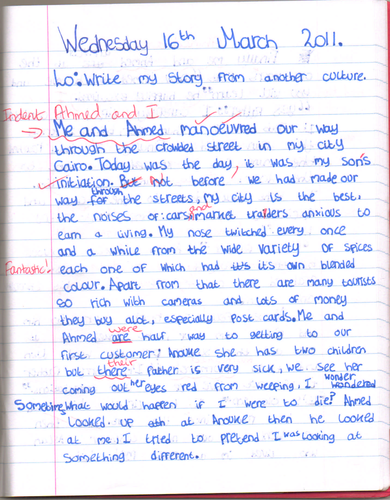 Wednesday 16th March 2011.
Lo: Write my story from another culture.
Indent Ahmed and I
Me and Ahmed manoeuvred our way
through the crowded street in my city
Cairo. Today was the day, it was my son's
initiation. But not before, we had made our
through
way for the streets, my city is the best,
and
the noises of: cars, market traders anxious to
earn a living. My nose twitched every once
and a while from the wide variety of spices
Fantastic! each one of which had its own blended
colour. Apart from that there are many tourists
so rich with cameras and lots of money
they buy alot, especially post cards. Me and
were
Ahmed are half way to getting to our
first customer: Anouke she has two children
their
but there father is very sick, we see her
her wonder
coming out eyes red from weeping, I wondered
Sometime, what would happen if I were to die? Ahmed
looked up at Anouke then he looked
at me, I tried to pretend I was looking at
something different.